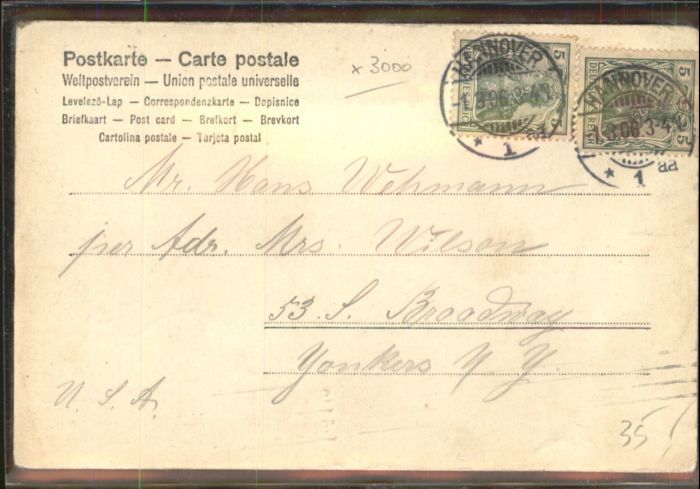 Postkarte — Carte postale
Weltpostverein — Union postale universelle
Levelező-Lap — Correspondenzkarte — Dopisnice
Briefkaart — Post card — Brefkort — Brevkort
Cartolina postale — Tarjeta postal
× 3000
HANNOVER
3.06 3-4
* 1
HANNOVER
3.06 3-4
* 1 aa
5 5
DEUTSCHES REICH
5 5
Mr. Hans Wehmann
per Adr. Mrs. Wilson
53. S. Broadway
Yonkers N. Y.
U. S. A.
35